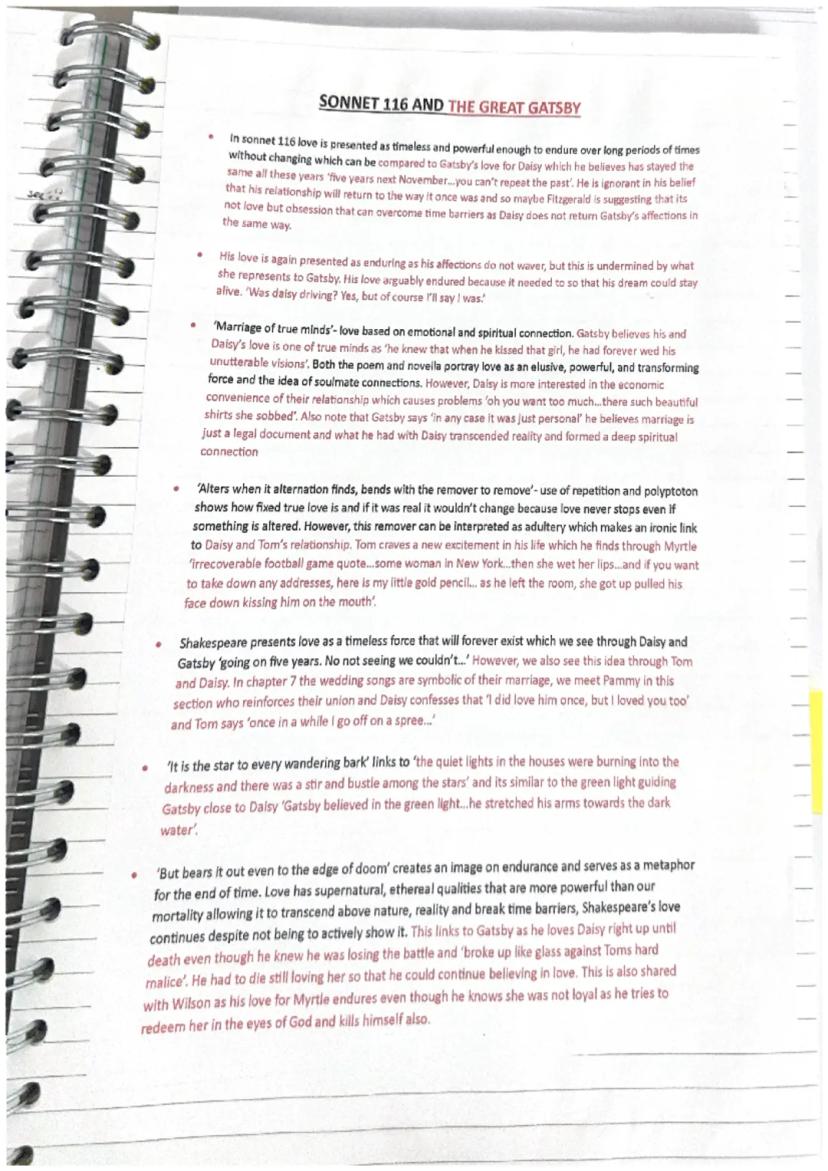 SONNET 116 AND THE GREAT GATSBY
• In sonnet 116 love is presented as timeless and powerful enough to endure over long periods of times
without changing which can be compared to Gatsby's love for Daisy which he believes has stayed the
same all these years 'five years next November...you can't repeat the past'. He is ignorant in his belief
that his relationship will return to the way it once was and so maybe Fitzgerald is suggesting that its
not love but obsession that can overcome time barriers as Daisy does not return Gatsby's affections in
the same way.
• His love is again presented as enduring as his affections do not waver, but this is undermined by what
she represents to Gatsby. His love arguably endured because it needed to so that his dream could stay
alive. 'Was daisy driving? Yes, but of course I'll say I was.'
• 'Marriage of true minds'- love based on emotional and spiritual connection. Gatsby believes his and
Daisy's love is one of true minds as 'he knew that when he kissed that girl, he had forever wed his
unutterable visions'. Both the poem and novella portray love as an elusive, powerful, and transforming
force and the idea of soulmate connections. However, Daisy is more interested in the economic
convenience of their relationship which causes problems 'oh you want too much...there such beautiful
shirts she sobbed'. Also note that Gatsby says 'in any case it was just personal' he believes marriage is
just a legal document and what he had with Daisy transcended reality and formed a deep spiritual
connection
• 'Alters when it alternation finds, bends with the remover to remove'- use of repetition and polyptoton
shows how fixed true love is and if it was real it wouldn't change because love never stops even if
something is altered. However, this remover can be interpreted as adultery which makes an ironic link
to Daisy and Tom's relationship. Tom craves a new excitement in his life which he finds through Myrtle
'irrecoverable football game quote...some woman in New York...then she wet her lips...and if you want
to take down any addresses, here is my little gold pencil... as he left the room, she got up pulled his
face down kissing him on the mouth'.
• Shakespeare presents love as a timeless force that will forever exist which we see through Daisy and
Gatsby 'going on five years. No not seeing we couldn't...' However, we also see this idea through Tom
and Daisy. In chapter 7 the wedding songs are symbolic of their marriage, we meet Pammy in this
section who reinforces their union and Daisy confesses that 'I did love him once, but I loved you too'
and Tom says 'once in a while I go off on a spree...'
• 'It is the star to every wandering bark' links to 'the quiet lights in the houses were burning into the
darkness and there was a stir and bustle among the stars' and its similar to the green light guiding
Gatsby close to Daisy 'Gatsby believed in the green light...he stretched his arms towards the dark
water'.
• 'But bears it out even to the edge of doom' creates an image on endurance and serves as a metaphor
for the end of time. Love has supernatural, ethereal qualities that are more powerful than our
mortality allowing it to transcend above nature, reality and break time barriers, Shakespeare's love
continues despite not being to actively show it. This links to Gatsby as he loves Daisy right up until
death even though he knew he was losing the battle and 'broke up like glass against Toms hard
malice'. He had to die still loving her so that he could continue believing in love. This is also shared
with Wilson as his love for Myrtle endures even though he knows she was not loyal as he tries to
redeem her in the eyes of God and kills himself also.